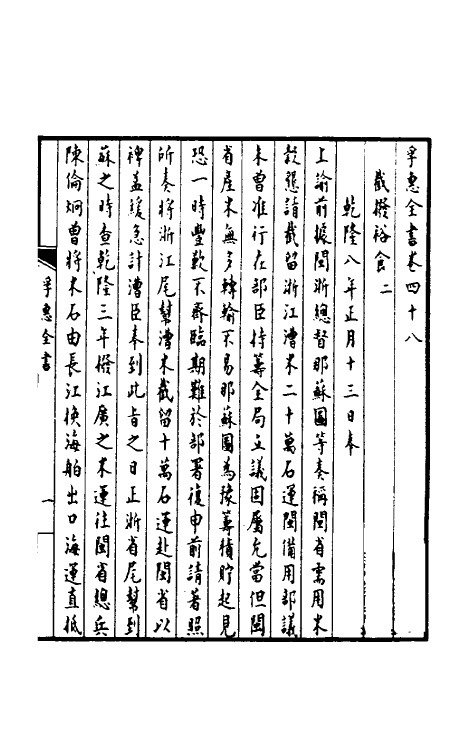 孚惠全書卷四十八
截撥裕食二
乾隆八年正月十三日奉
上諭前據閩浙總督那蘇圖等奏稱閩省需用米
穀懇請截留浙江漕米二十萬石運閩備用部議
未曾准行在部臣持籌全局立議固屬允當但閩
省産米無多轉輸不易那蘇圖為豫籌積貯起見
恐一時豐歉不齊臨期難於部署復申前請著照
所奏將浙江尾幫漕米截留十萬石運赴閩省以
裨益緩急計漕臣奉到此旨之日正浙省尾幫到
蘇之時查乾隆三年撥江廣之米運往閩省總兵
陳倫炯曾將米石由長江換海舶出口海運直抵
孚惠全書
一